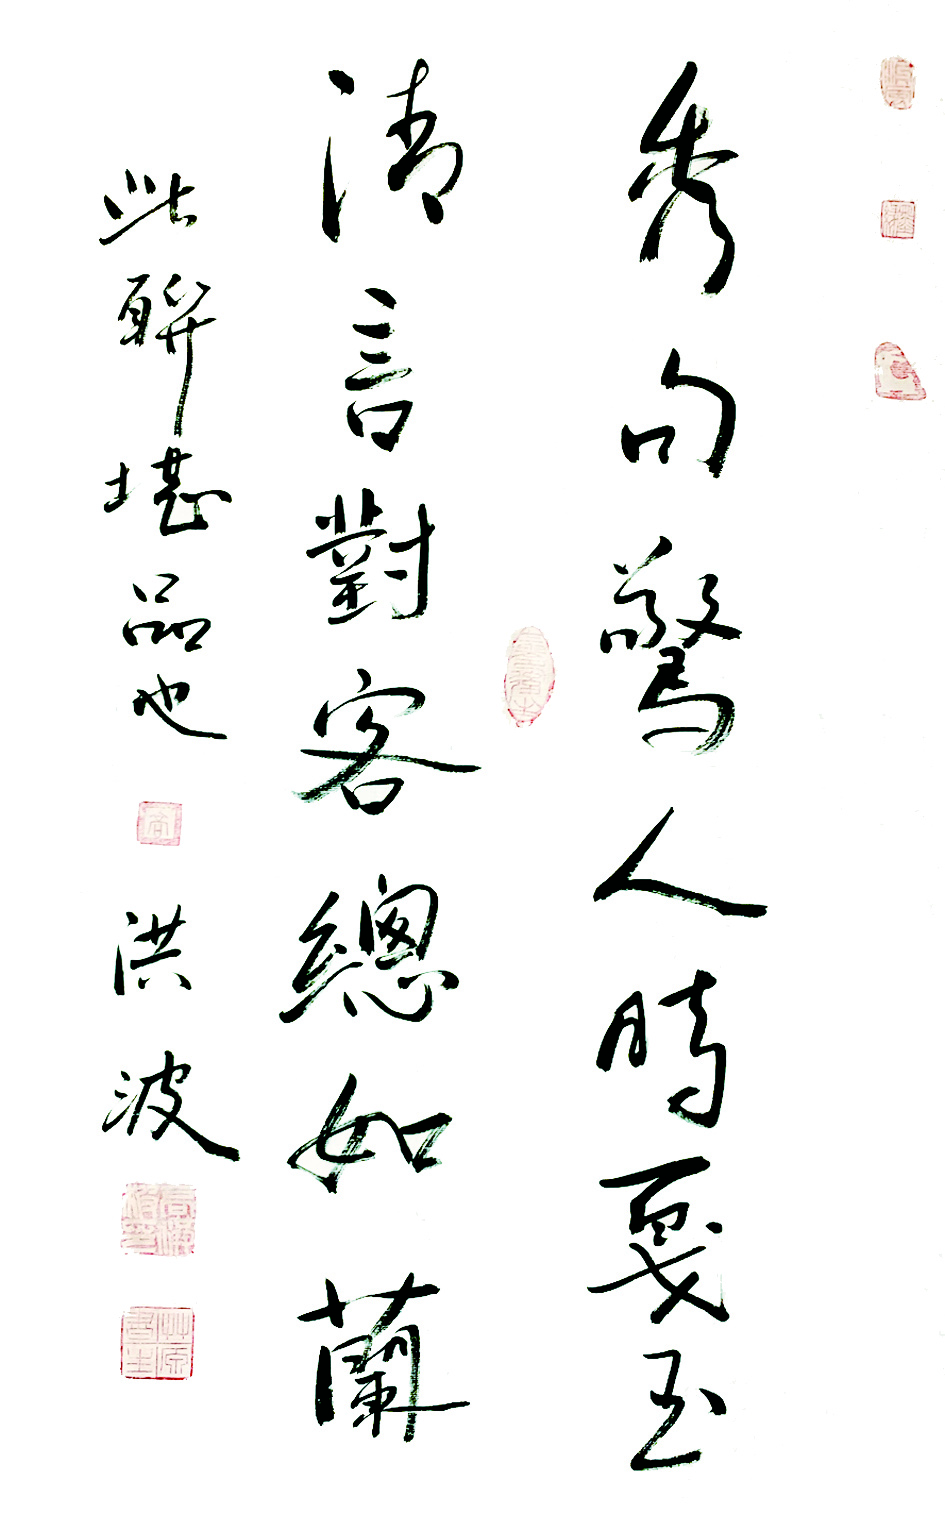 秀句驚人時戛玉
清言對客總如蘭
此聯堪品也
洪波